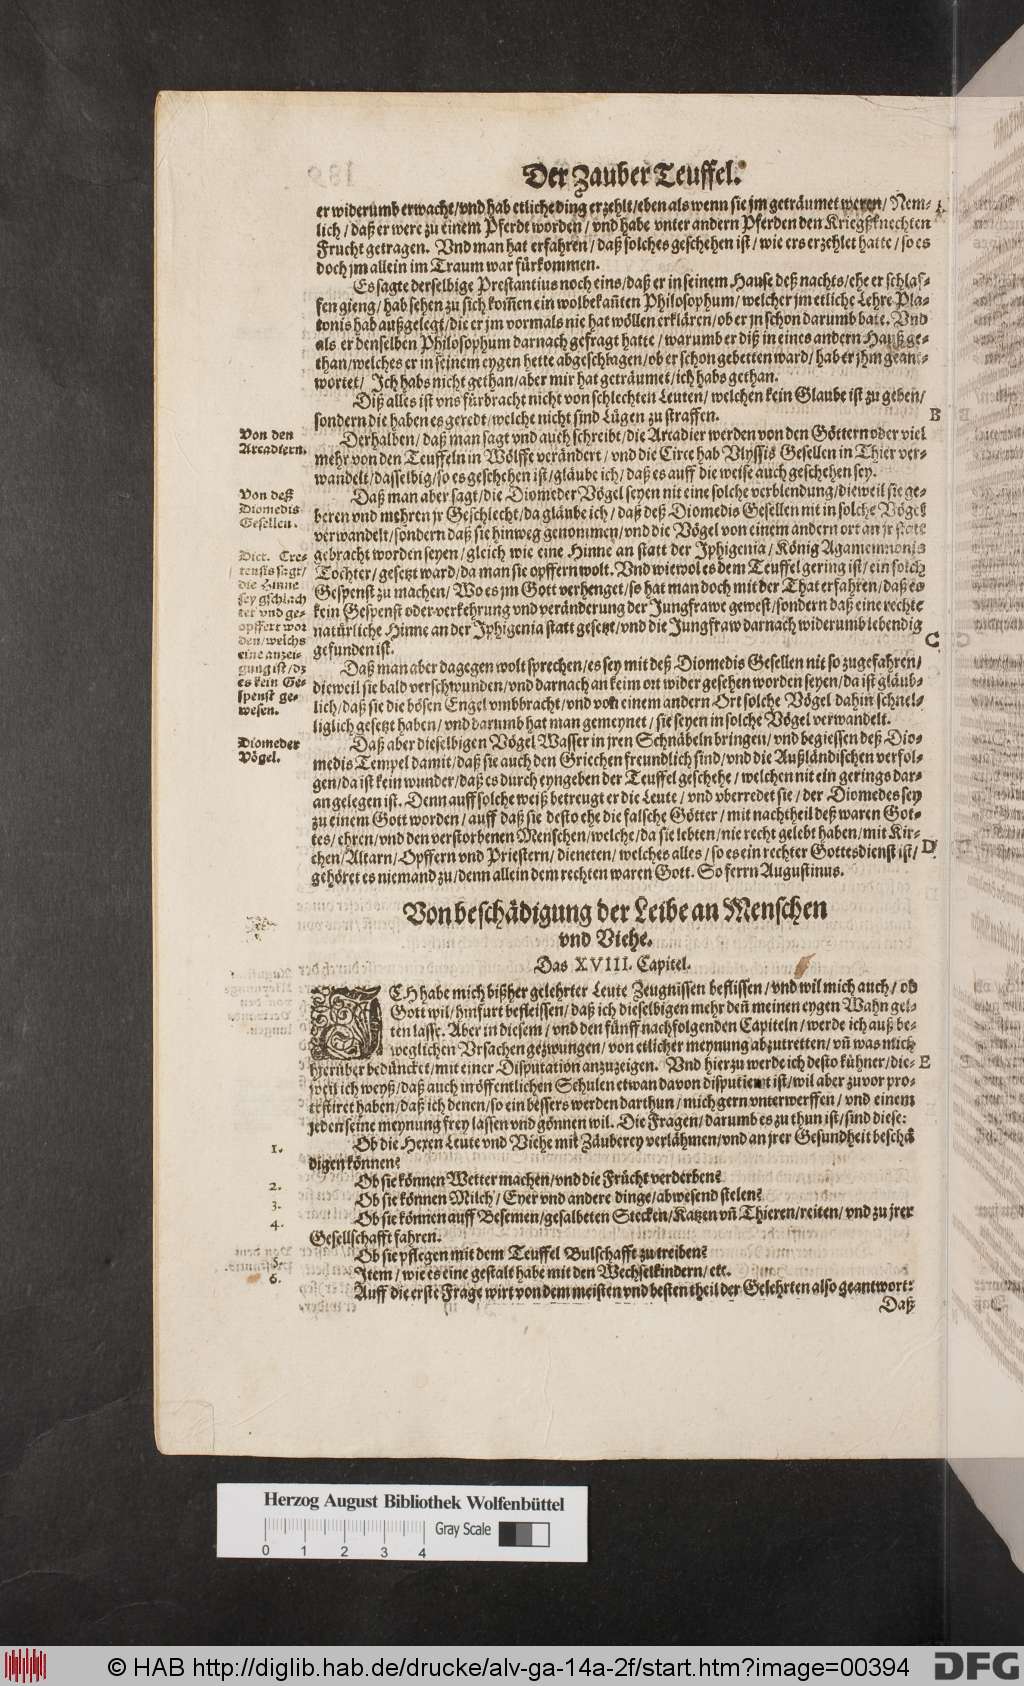 Der Zauber Teuffel.
er widerumb erwacht/vnd hab etliche ding erzehlt/eben als wenn sie jm geträumet weren/ Nem-
lich/ daß er were zu einem Pferdt worden/ vnd habe vnter andern Pferden den Kriegßknechten
Frucht getragen. Vnd man hat erfahren/ daß solches geschehen ist/ wie ers erzehlet hatte/ so es
doch jm allein im Traum war fürkommen.
Es sagte derselbige Prestantius noch eins/daß er in seinem Hause deß nachts/ehe er schlaf-
fen gieng/ hab sehen zu sich kom̃en ein wolbekañten Philosophum/ welcher jm etliche Lehre Pla-
tonis hab außgelegt/die er jm vormals nie hat wöllen erklären/ob er jn schon darumb bate. Vnd
als er denselben Philosophum darnach gefragt hatte/ warumb er diß in eines andern Hauß ge-
than/welches er in seinem eygen hette abgeschlagen/ob er schon gebetten ward/ hab er jhm geant-
wortet/ Ich habs nicht gethan/aber mir hat geträumet/ich habs gethan.
Diß alles ist vns fürbracht nicht von schlechten Leuten/ welchen kein Glaube ist zu geben/
B
sondern die haben es geredt/welche nicht sind Lügen zu straffen.
Von den
Arcadiern.
Derhalben/ daß man sagt vnd auch schreibt/die Arcadier werden von den Göttern oder viel
mehr von den Teuffeln in Wölffe verändert/ vnd die Circe hab Vlyssis Gesellen in Thier ver-
wandelt/dasselbig/so es geschehen ist/gläube ich/ daß es auff die weise auch geschehen sey.
Von deß
Diomedis
Gesellen.
Daß man aber sagt/die Diomeder Vögel seyen nit eine solche verblendung/dieweil sie ge-
beren vnd mehren jr Geschlecht/da gläube ich/ daß deß Diomedis Gesellen nit in solche Vögel
verwandelt/sondern daß sie hinweg genommen/vnd die Vögel von einem andern ort an jr statt
Dict. Cre-
tensis sagt/
die Hinne
sey gschlach
tet vnd ge-
opffert wor
den/welchs
eine anzei-
gung ist/dz
es kein Ge-
spenst ge-
wesen.
gebracht worden seyen/ gleich wie eine Hinne an statt der Iphigenia/ König Agamemnonis
Tochter/ gesetzt ward/da man sie opffern wolt. Vnd wiewol es dem Teuffel gering ist/ein solch
Gespenst zu machen/ Wo es jm Gott verhenget/so hat man doch mit der That erfahren/daß es
kein Gespenst oder verkehrung vnd veränderung der Jungfrawe gewest/sondern daß eine rechte
natürliche Hinne an der Iphigenia statt gesetzt/vnd die Jungfraw darnach widerumb lebendig
C
gefunden ist.
Daß man aber dagegen wolt sprechen/es sey mit deß Diomedis Gesellen nit so zugefahren/
dieweil sie bald verschwunden/vnd darnach an keim ort wider gesehen worden seyen/da ist gläub-
lich/daß sie die bösen Engel vmbbracht/vnd von einem andern Ort solche Vögel dahin schnel-
liglich gesetzt haben/ vnd darumb hat man gemeynet/ sie seyen in solche Vögel verwandelt.
Diomeder
Vögel.
Daß aber dieselbigen Vögel Wasser in jren Schnäbeln bringen/ vnd begiessen deß Dio-
medis Tempel damit/daß sie auch den Griechen freundlich sind/vnd die Außländischen verfol-
gen/da ist kein wunder/daß es durch eyngeben der Teuffel geschehe/ welchen nit ein gerings dar-
an gelegen ist. Denn auff solche weiß betreugt er die Leute/ vnd vberredet sie/ der Diomedes sey
zu einem Gott worden/ auff daß sie desto ehe die falsche Götter/ mit nachtheil deß waren Got-
tes/ ehren/vnd den verstorbenen Menschen/welche/da sie lebten/nie recht gelebt haben/mit Kir-
D
chen/Altarn/Opffern vnd Priestern/ dieneten/ welches alles/ so es ein rechter Gottesdienst ist/
gehöret es niemand zu/denn allein dem rechten waren Gott. So ferrn Augustinus.
Von beschädigung der Leibe an Menschen
vnd Viehe.
Das XVIII. Capitel.
ICH habe mich bißher gelehrter Leute Zeugnissen beflissen/vnd wil mich auch/ ob
Gott wil/hinfurt befleissen/daß ich dieselbigen mehr deñ meinen eygen Wahn gel-
ten lasse. Aber in diesem/ vnd den fünff nachfolgenden Capiteln/ werde ich auß be-
weglichen Vrsachen gezwungen/ von etlicher meynung abzutretten/ vñ was mich
E
hierüber bedünckt/mit einer Disputation anzuzeigen. Vnd hierzu werde ich desto kühner/die-
weil ich weyß/daß auch in öffentlichen Schulen etwan davon disputiert ist/wil aber zuvor pro-
testiret haben/daß ich denen/so ein bessers werden darthun/ mich gern vnterwerffen/ vnd einem
jeden seine meynung frey lassen vnd gönnen wil. Die Fragen/darumb es zu thun ist/sind diese:
1. Ob die Hexen Leute vnd Viehe mit Zäuberey verlähmen/vnd an jrer Gesundheit beschä
digen können?
2. Ob sie können Wetter machen/vnd die Frücht verderben?
3. Ob sie können Milch/ Eyer vnd andere dinge/abwesend stelen?
4. Ob sie können auff Besemen/gesalbeten Stecken/Katzen vñ Thieren/reiten/ vnd zu jrer
Gesellschafft fahren.
5. Ob sie pflegen mit dem Teuffel Bulschafft zu treiben?
6. Item/ wie es eine gestalt habe mit den Wechselkindern/ etc.
Auff die erste Frage wirt von dem meisten vnd besten theil der Gelehrten also geantwort:
Daß
Herzog August Bibliothek Wolfenbüttel
Gray Scale
0 1 2 3 4
© HAB http://diglib.hab.de/drucke/alv-ga-14a-2f/start.htm?image=00394
DFG